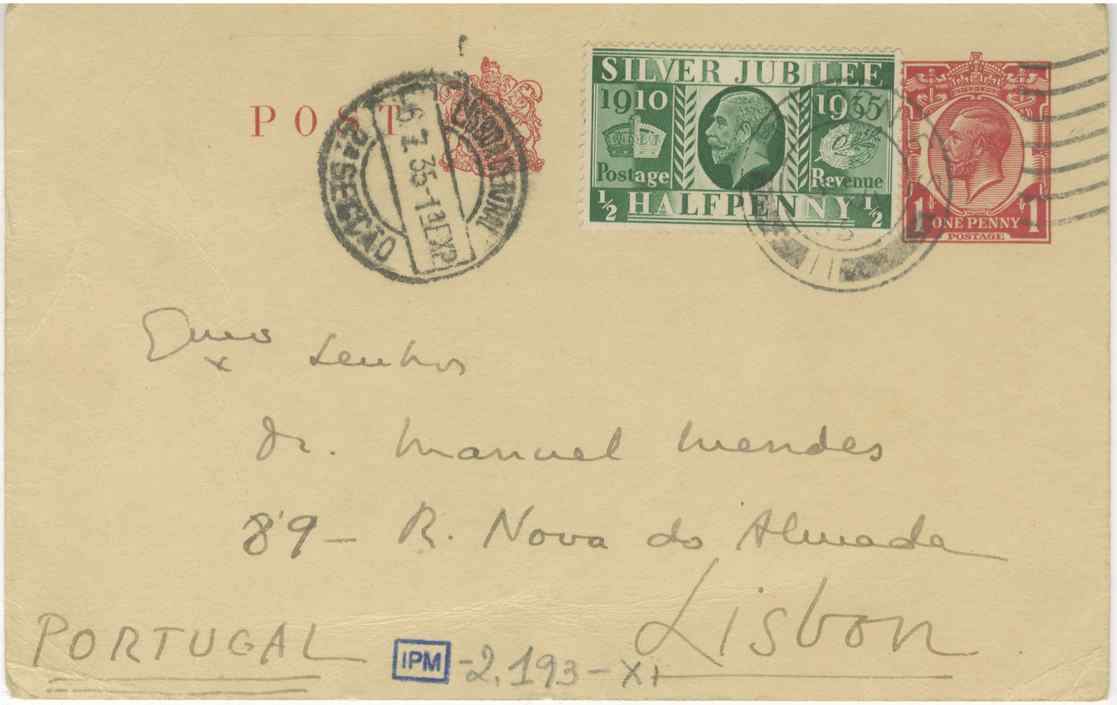 POST
SILVER JUBILEE
1910 1935
Postage Revenue
½ HALFPENNY ½
1 ONE PENNY 1
POSTAGE
LISBOA CENTRAL
6.7.35-13
2ª SECÇÃO
Exmo Senhor
Dr. Manuel Mendes
89 - R. Nova do Almada
Lisbon
PORTUGAL
IPM -2.193-XI